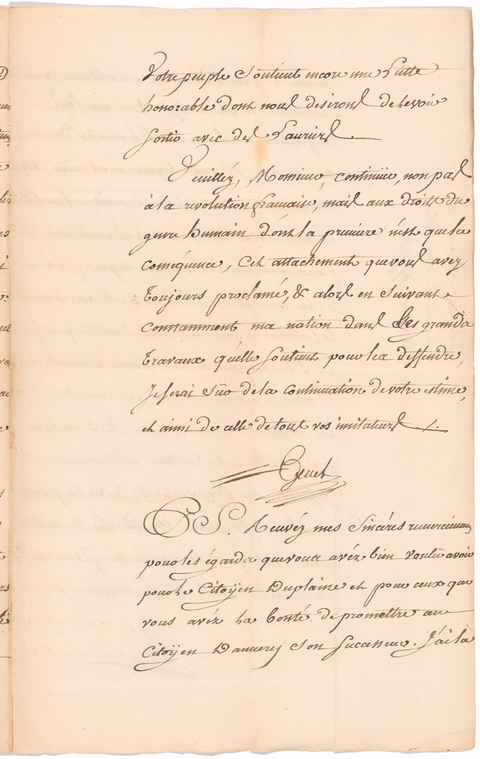 Votre peuple Soutient encore une Lutte
honorable dont nous desirons de le voir
Sortir avec des Lauriers.
Veuillez, Monsieur, continuer, non pas
à la revolution française, mais aux droits du
genre humain dont la premiere n'est que la
consequence, Cet attachement que vous avez
toujours proclamé, & alors en Suivant
constamment ma nation dans Les grands
travaux qu'elle Soutient pour les deffendre,
Je serai Sûr de la continuation de votre estime,
et ainsi de celle de tous vos imitateurs
Genet
P.S. Recevéz mes Sincéres remerciemens
pour les égards que vous avéz bien voulu avoir
pour le Citoÿen Duplaine et pour ceux que
vous avéz la bonté de promettre au
Citoÿen Dannery Son Successeur. J'ai la